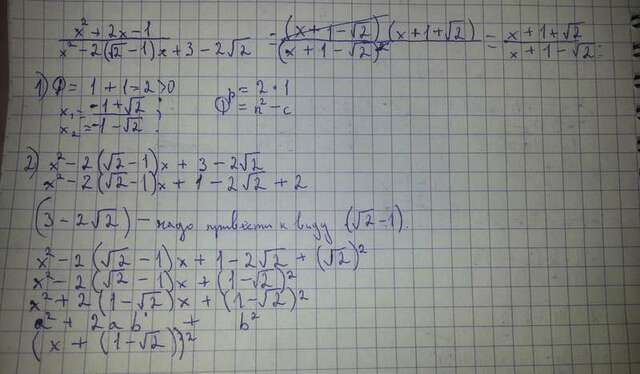 (x² + 2x - 1)/(x² - 2(√2 - 1)x + 3 - 2√2) = ((x + 1 - √2)(x + 1 + √2))/(x + 1 - √2)² = (x + 1 + √2)/(x + 1 - √2).
1) D = 1 + 1 = 2 > 0 p = 2 · 1
x₁ = -1 + √2 ; D = n² - c
x₂ = -1 - √2 .
2) x² - 2(√2 - 1)x + 3 - 2√2
x² - 2(√2 - 1)x + 1 - 2√2 + 2
(3 - 2√2) - надо привести к виду (√2 - 1).
x² - 2(√2 - 1)x + 1 - 2√2 + (√2)²
x² - 2(√2 - 1)x + (1 - √2)²
x² + 2(1 - √2)x + (1 - √2)²
a² + 2ab + b²
(x + (1 - √2))²